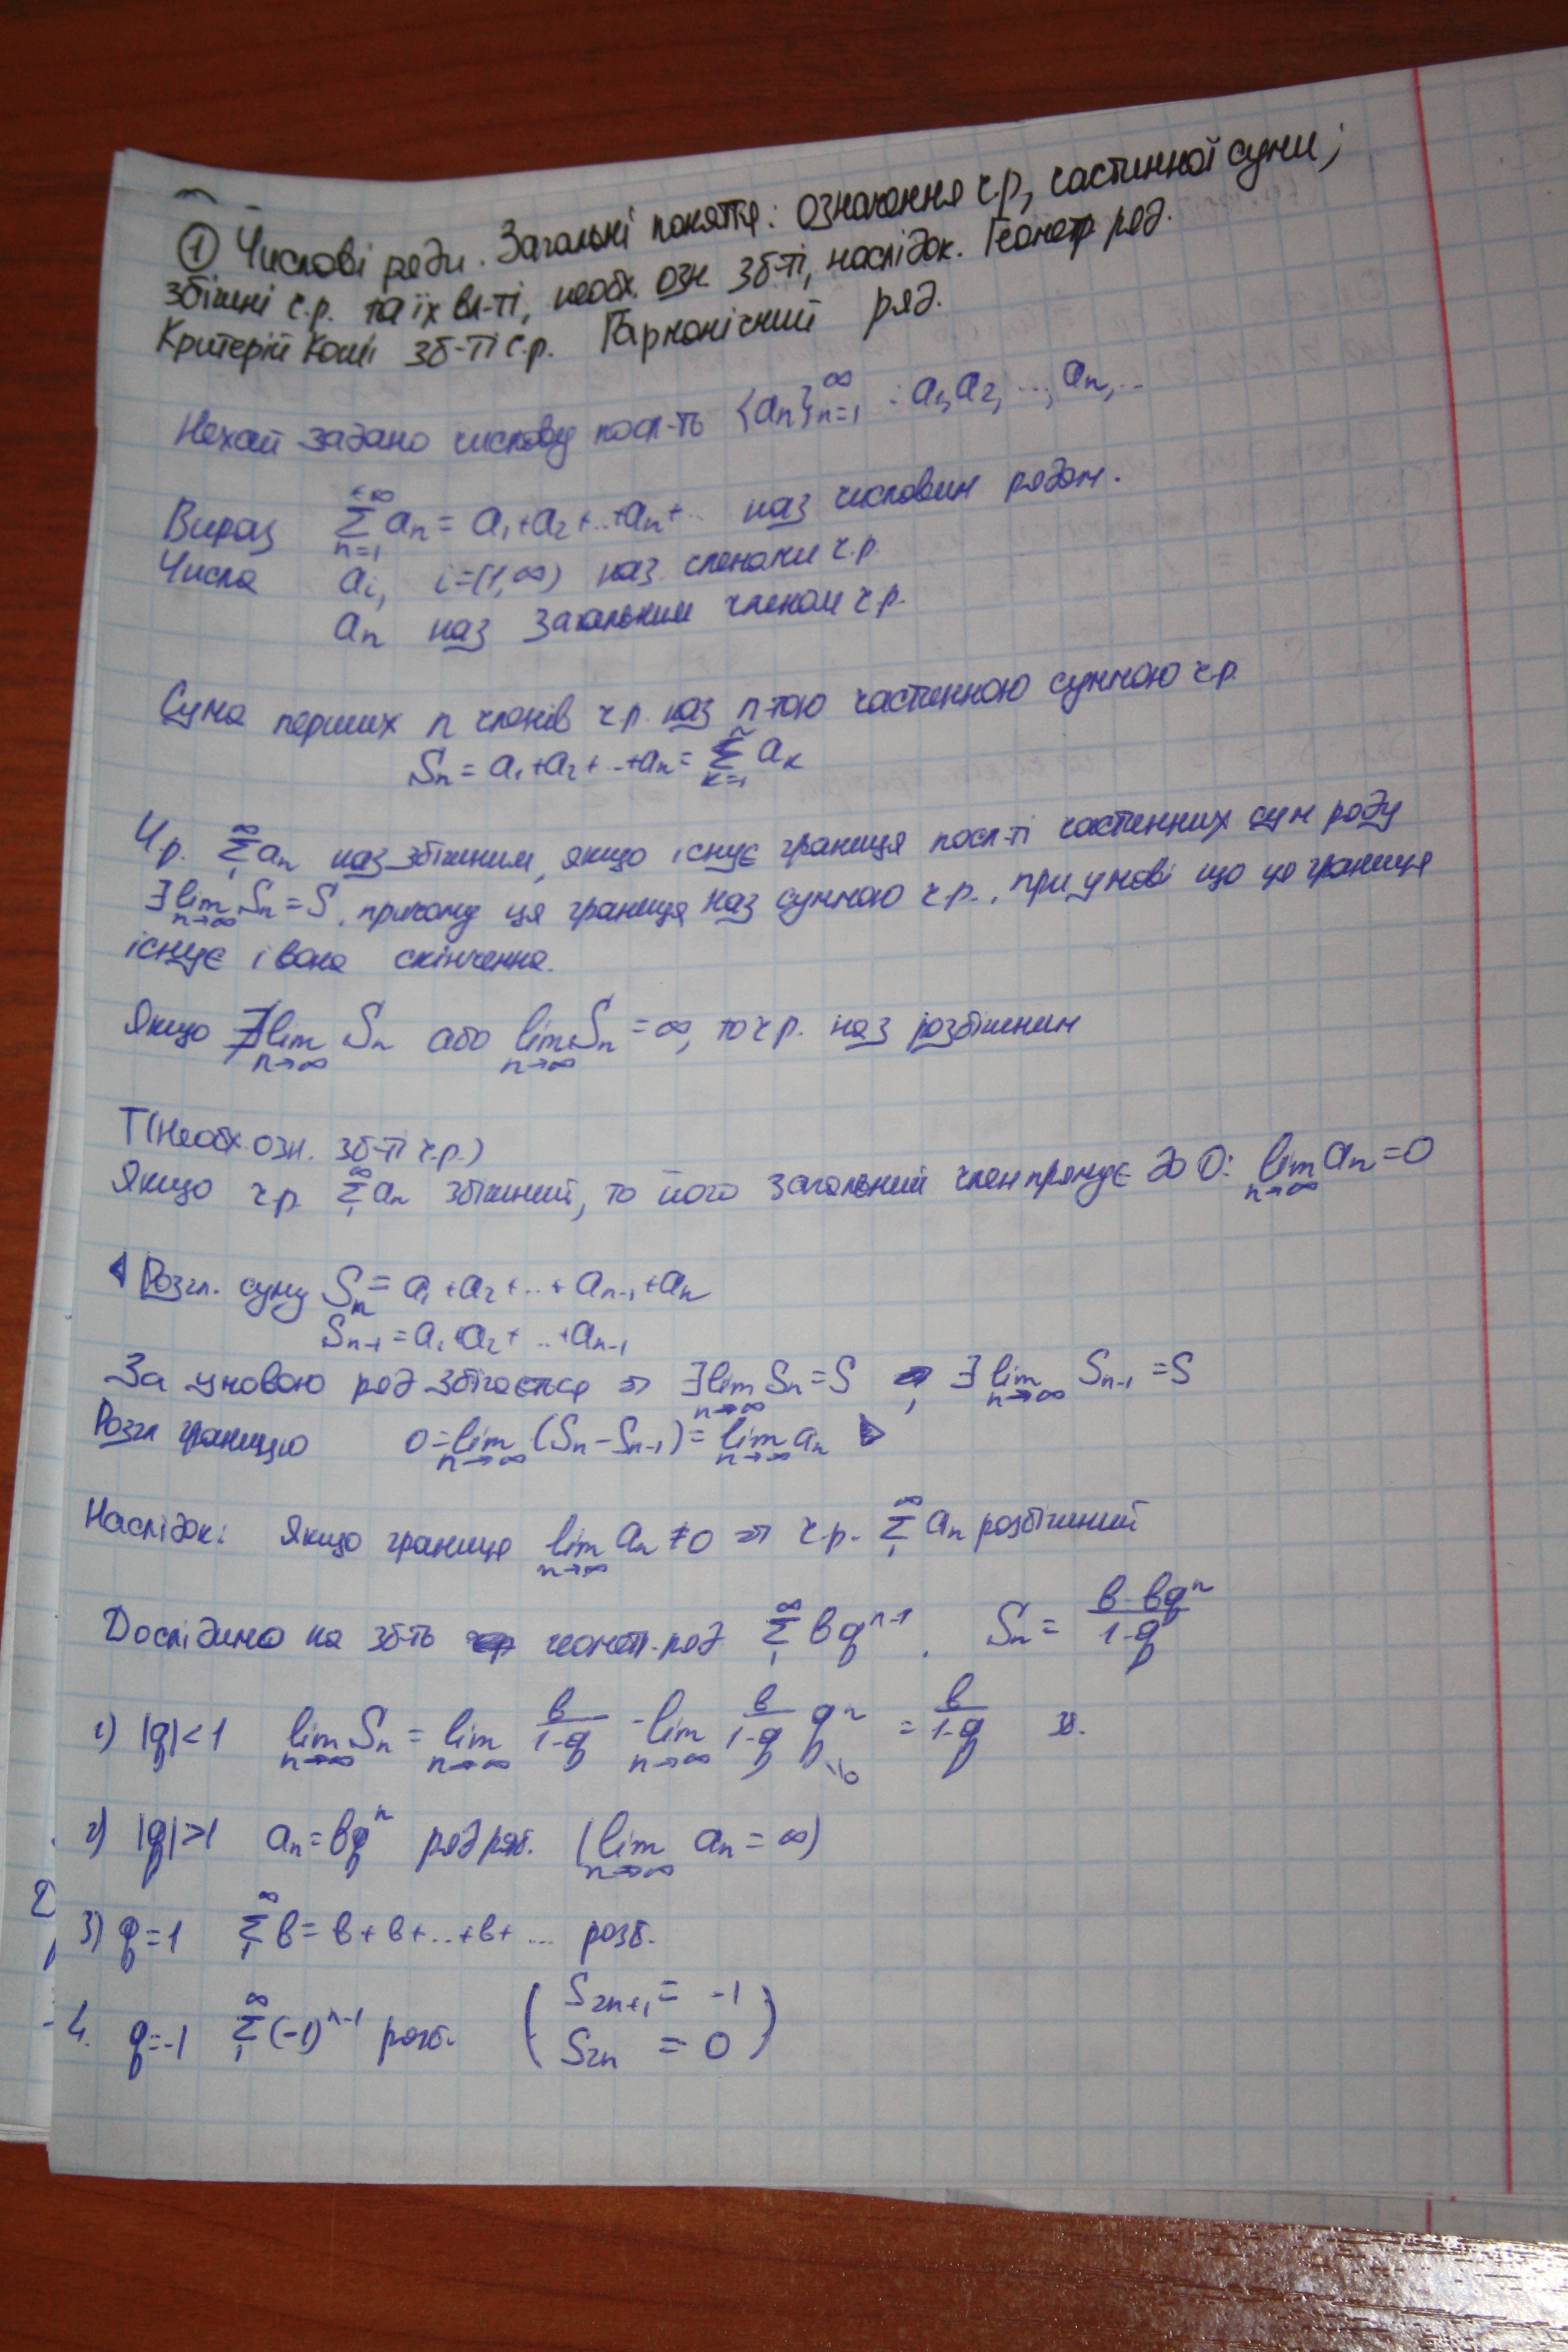 ① Числові ряди. Загальні поняття: означення ч.р, частинної суми;
збіжні ч.р. та їх вл-ті, необх. озн. зб-ті, наслідок. Геометр ряд.
Критерій Коші зб-ті ч.р. Гармонічний ряд.
Нехай задано числову посл-ть {aₙ}ₙ₌₁^∞ : a₁, a₂, ..., aₙ, ..
Вираз ∑ₙ₌₁^{+∞} aₙ = a₁+a₂+..+aₙ+.. наз числовим рядом.
Числа aᵢ, i=(1,∞) наз членами ч.р.
aₙ наз загальним членом ч.р.
Сума перших n членів ч.р. наз n-тою частинною суммою ч.р.
Sₙ = a₁+a₂+..+aₙ = ∑ₖ₌₁ⁿ aₖ
Ч.р. ∑₁^∞ aₙ наз збіжним, якщо існує границя посл-ті частинних сум ряду
∃ lim_{n→∞} Sₙ = S, причому ця границя наз суммою ч.р., при умові що ця границя
існує і вона скінченна.
Якщо ∄ lim_{n→∞} Sₙ або lim_{n→∞} Sₙ = ∞, то ч.р. наз розбіжним
Т(Необх. озн. зб-ті ч.р.)
Якщо ч.р. ∑₁^∞ aₙ збіжний, то його загальний член прямує до 0: lim_{n→∞} aₙ = 0
◀ Розгл. суму Sₙ = a₁+a₂+..+aₙ₋₁+aₙ
Sₙ₋₁ = a₁+a₂+..+aₙ₋₁
За умовою ряд збігається ⇒ ∃ lim_{n→∞} Sₙ = S, ∃ lim_{n→∞} Sₙ₋₁ = S
Розгл границю 0 = lim_{n→∞} (Sₙ - Sₙ₋₁) = lim_{n→∞} aₙ ▶
Наслідок: Якщо границя lim_{n→∞} aₙ ≠ 0 ⇒ ч.р. ∑₁^∞ aₙ розбіжний
Дослідимо на зб-ть геомет. ряд ∑₁^∞ bqⁿ⁻¹. Sₙ = (b-bqⁿ)/(1-q)
1) |q|<1 lim_{n→∞} Sₙ = lim_{n→∞} b/(1-q) - lim_{n→∞} b/(1-q) qⁿ = b/(1-q) зб.
↘0
2) |q|>1 aₙ = bqⁿ ряд розб. (lim_{n→∞} aₙ = ∞)
3) q=1 ∑₁^∞ b = b+b+..+b+... розб.
4. q=-1 ∑₁^∞ (-1)ⁿ⁻¹ розб. (S₂ₙ₊₁ = -1
S₂ₙ = 0)